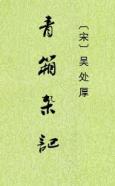 青箱杂記
〔宋〕吴处厚